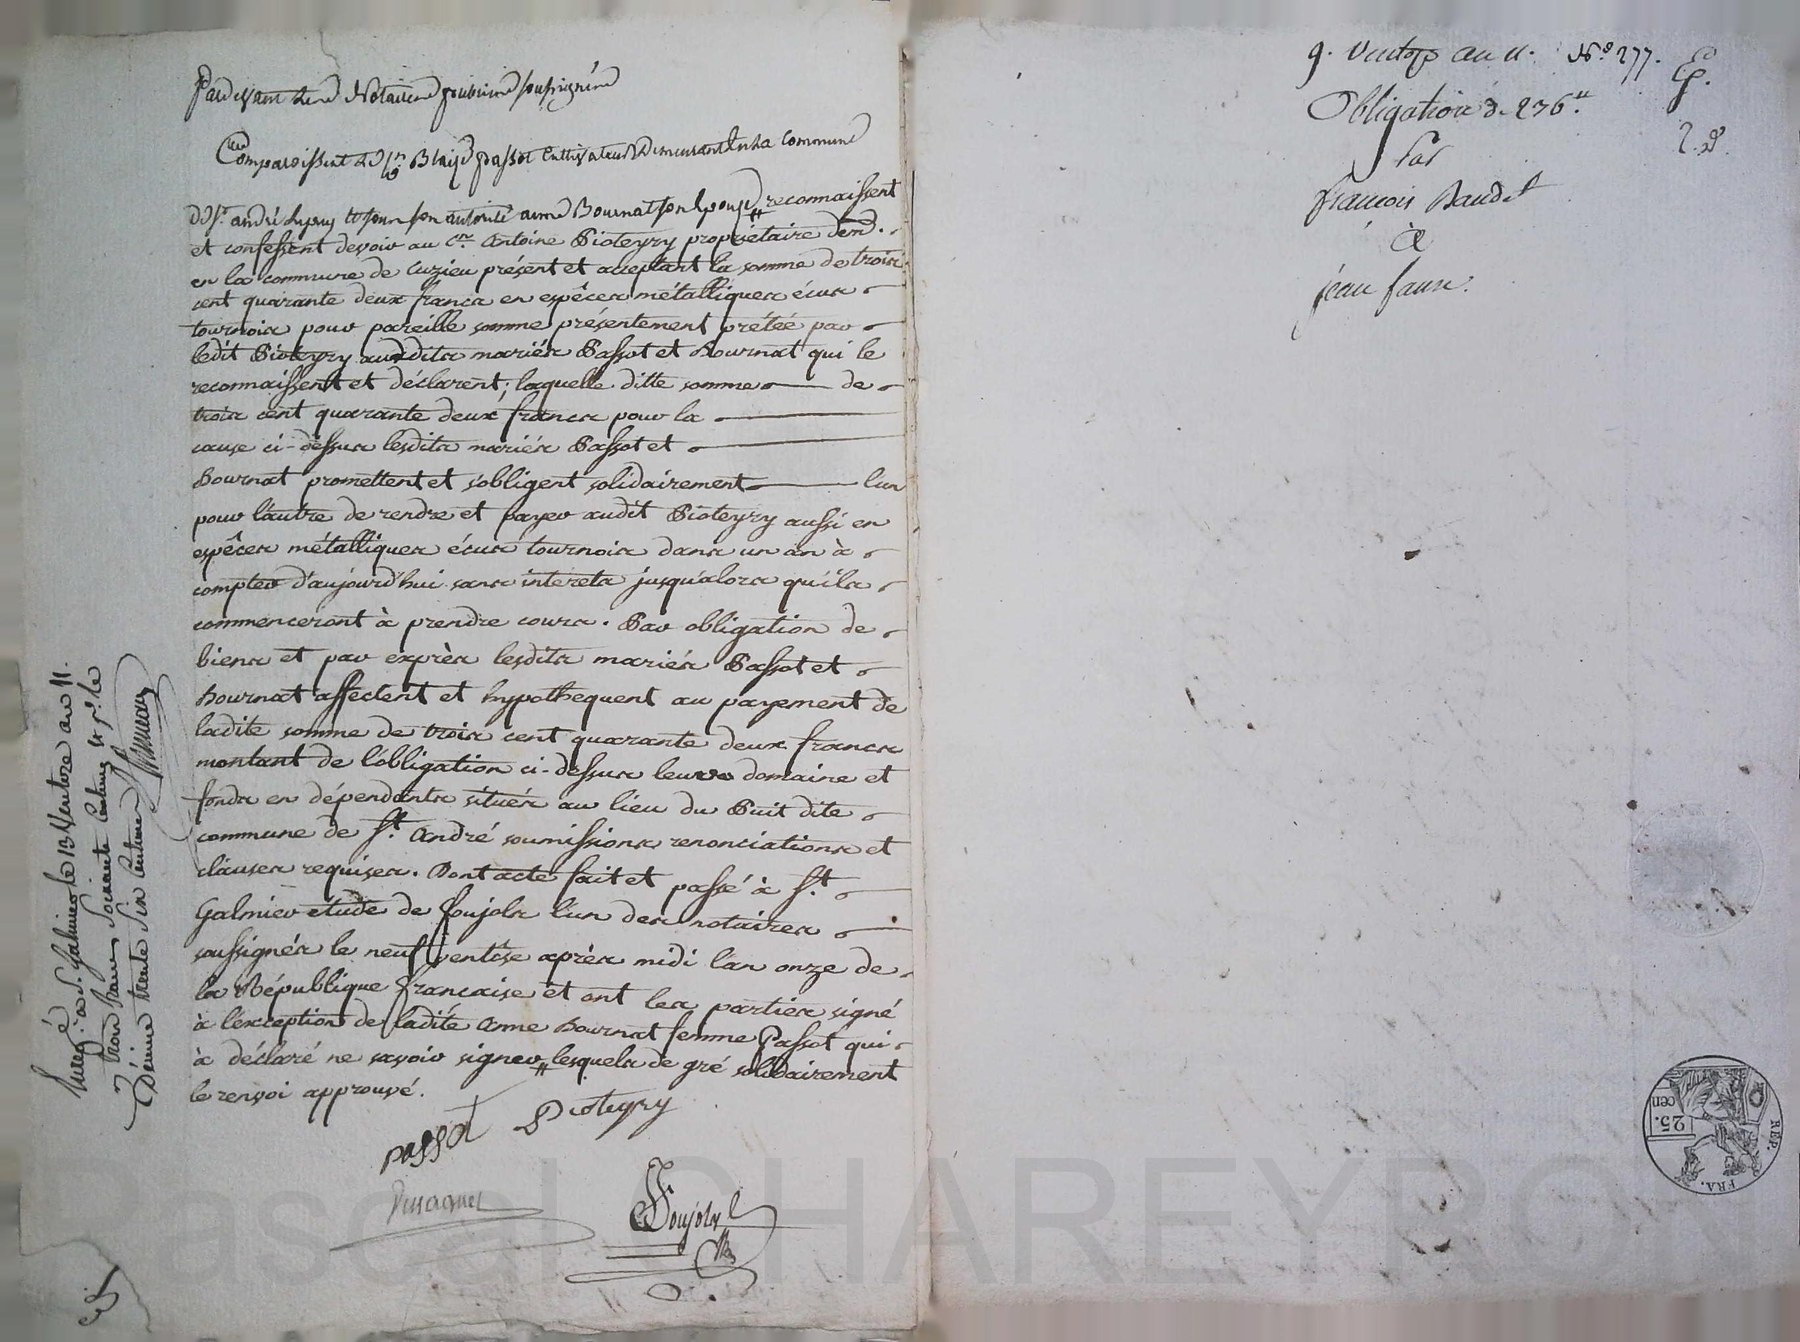 Pardevant Les Notaires publics soussignés
Comparoissent le Sr. Blaise passot cultivateur Demeurant En La Commune
de St. andré Le puy et sous son autorité anne Bournat son Epouse # reconnaissent
et confessent devoir au Cen. Antoine Pioteyry propriétaire demt.
en la commune de Cuzieu présent et acceptant la somme de trois
cent quarante deux francs en espêces métalliques écus
tournois pour pareille somme présentement prétée par
ledit Pioteyry auxdits mariés Passot et Bournat qui le
reconnaissent et déclarent; laquelle ditte somme de
trois cent quarante deux francs pour la
cause ci-dessus lesdits mariés Passot et
Bournat promettent et s'obligent solidairement l'un
pour l'autre de rendre et payer audit Pioteyry aussi en
espêces métalliques écus tournois dans un an à
compter d'aujourd'hui sans intérets jusqu'alors qu'ils
commenceront à prendre cours. Par obligation de
biens et par exprès lesdits mariés Passot et
Bournat affectent et hypothequent au payement de
ladite somme de trois cent quarante deux francs
montant de l'obligation ci-dessus leurs domaine et
fonds en dépendants situés au lieu du Puit dite
commune de St. André soumissions renonciations et
clauses requises. Dont acte fait et passé à St.
Galmier etude de Soujols l'un des notaires
soussignés le neuf ventôse après midi l'an onze de
la République française et ont les parties signé
à l'exception de ladite Anne Bournat femme Passot qui
à déclaré ne savoir signer # lesquels de gré solidairement
le renvoi approuvé.
passot Pioteyry
Soujols
Enregé. a St. Galmier le 13 Ventose an 11.
trois francs Soixante Centimes
Décime trente Six Centimes
9. Ventose an 11. No. 277.
Obligation de 276 #.
Par
françois Baudet
à
jean faure.
25. cen
REP. FRA.
Pascal CHAREYRON